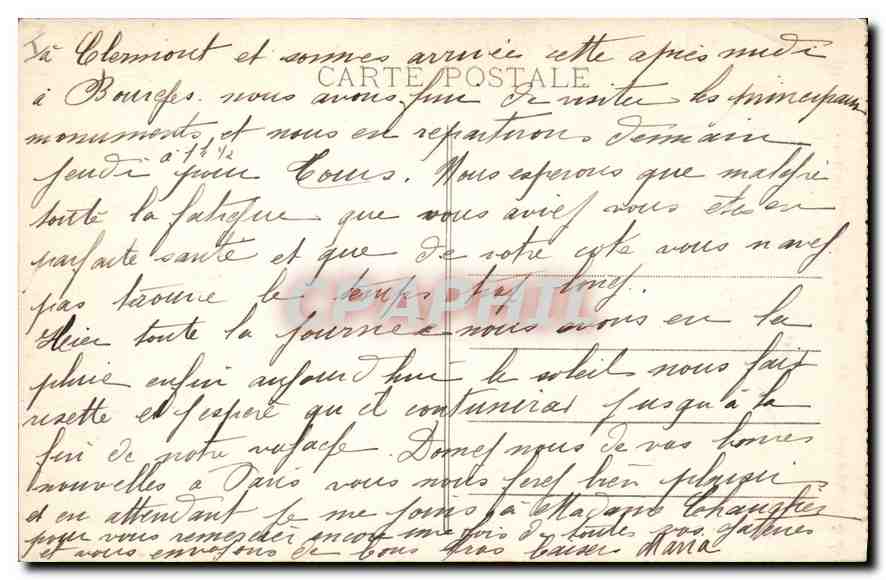 à Clermont et sommes arrivée cette après midi
CARTE POSTALE
à Bourges. nous avons fini de visiter les principaux
monuments, et nous en repartirons demain
jeudi à 1h 1/2 pour Tours. Nous esperons que malgré
toute la fatigue que vous aviez vous etes en
parfaite santé et que de votre coté vous n'avez
pas trouvé le temps trop long.
CPAPHIL
Hier toute la journée nous avons eu la
pluie enfin aujourd'hui le soleil nous fait
risette et j'espère qu'il continuera jusqu'à la
fin de notre voyage. Donnez nous de vos bonnes
nouvelles à Paris vous nous ferez bien plaisir
et en attendant je me joins à Madame
pour vous remercier encore une fois de toutes vos gateries
et vous envoyons de bons gros baisers Maria